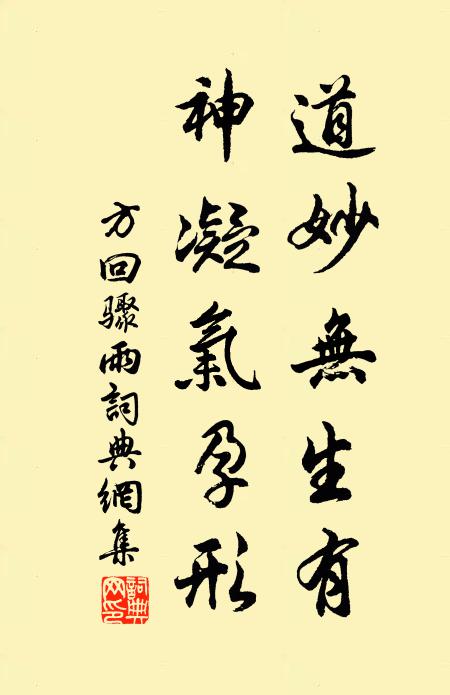 道妙無生有
神凝氣孕形
方回驟雨詞典網集
詞典網印